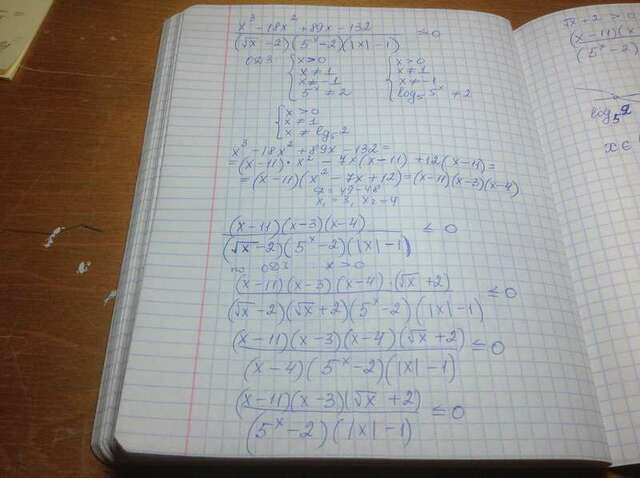 x³ − 18x² + 89x − 132
(√x − 2)(5ˣ − 2)(|x| − 1) ≤ 0
ОДЗ {x > 0 {x > 0
x ≠ 1 x ≠ 1
x ≠ −1 x ≠ −1
5ˣ ≠ 2 log₅ 5ˣ ≠ 2
{x > 0
x ≠ 1
x ≠ log₅ 2
x³ − 18x² + 89x − 132 =
= (x − 11) · x² − 7x(x − 11) + 12(x − 11) =
= (x − 11)(x² − 7x + 12) = (x − 11)(x − 3)(x − 4)
= 49 − 48
x₁ = 3, x₂ = 4
(x − 11)(x − 3)(x − 4)
(√x − 2)(5ˣ − 2)(|x| − 1) ≤ 0
по ОДЗ x > 0
(x − 11)(x − 3)(x − 4) · (√x + 2)
(√x − 2)(√x + 2)(5ˣ − 2)(|x| − 1) ≤ 0
(x − 11)(x − 3)(x − 4)(√x + 2)
(x − 4)(5ˣ − 2)(|x| − 1) ≤ 0
(x − 11)(x − 3)(√x + 2)
(5ˣ − 2)(|x| − 1) ≤ 0
√x + 2 > 0
(x − 11)(x
(5ˣ − 2)
log₅ 2
x ∈